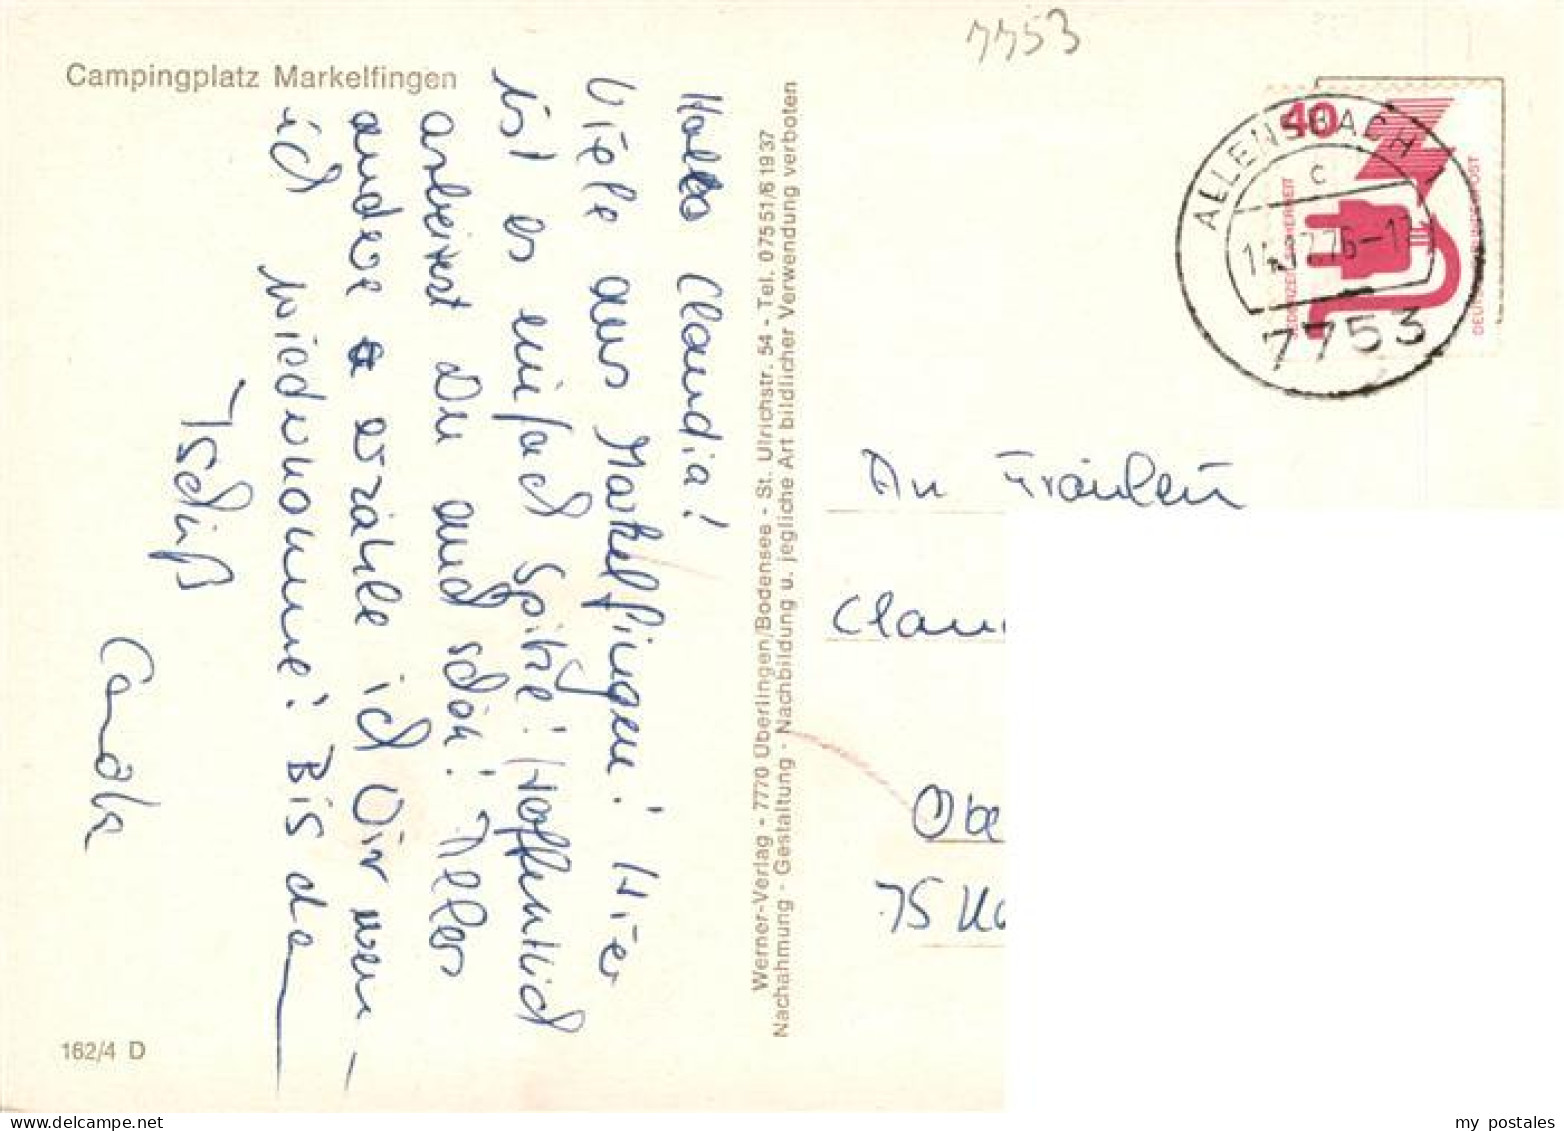 Campingplatz Markelfingen
Hallo Claudia!
Viele aus Markelfingen! Hier
ist es einfach Spitze! Hoffentlich
arbeitest Du auch schön! Alles
andere erzähle ich Dir wenn
ich wiederkomme! Bis da
Tschüß
162/4 D
Werner-Verlag - 7770 Überlingen/Bodensee - St. Ulrichstr. 54 - Tel. 07551/61937
Nachahmung - Gestaltung - Nachbildung u. jegliche Art bildlicher Verwendung verboten
7753
40
JEDERZEIT SICHERHEIT
DEUTSCHE BUNDESPOST
ALLENSBACH
c
7753
An Fräulein
Clau
Obe
75 Ka
my postales